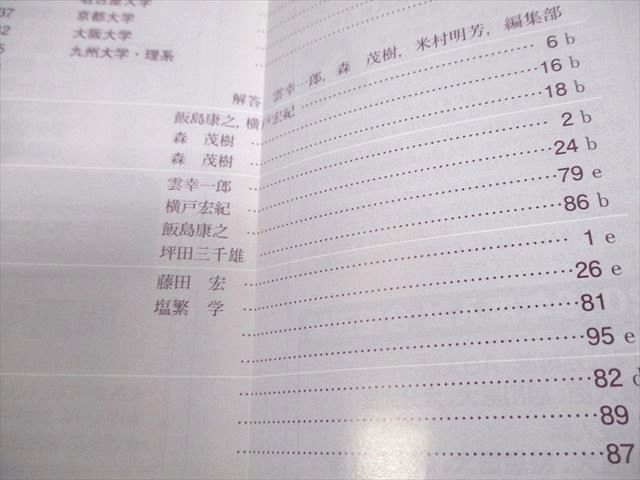 名古屋大学
37 京都大学
42 大阪大学
5 九州大学・理系
解答 雲幸一郎, 森 茂樹, 米村明芳, 編集部
飯島康之, 横戸宏紀 6 b
森 茂樹 16 b
森 茂樹 18 b
雲幸一郎 2 b
横戸宏紀 24 b
飯島康之 79 e
坪田三千雄 86 b
藤田 宏 1 e
塩繁 学 26 e
81
95 e
82 d
89
87